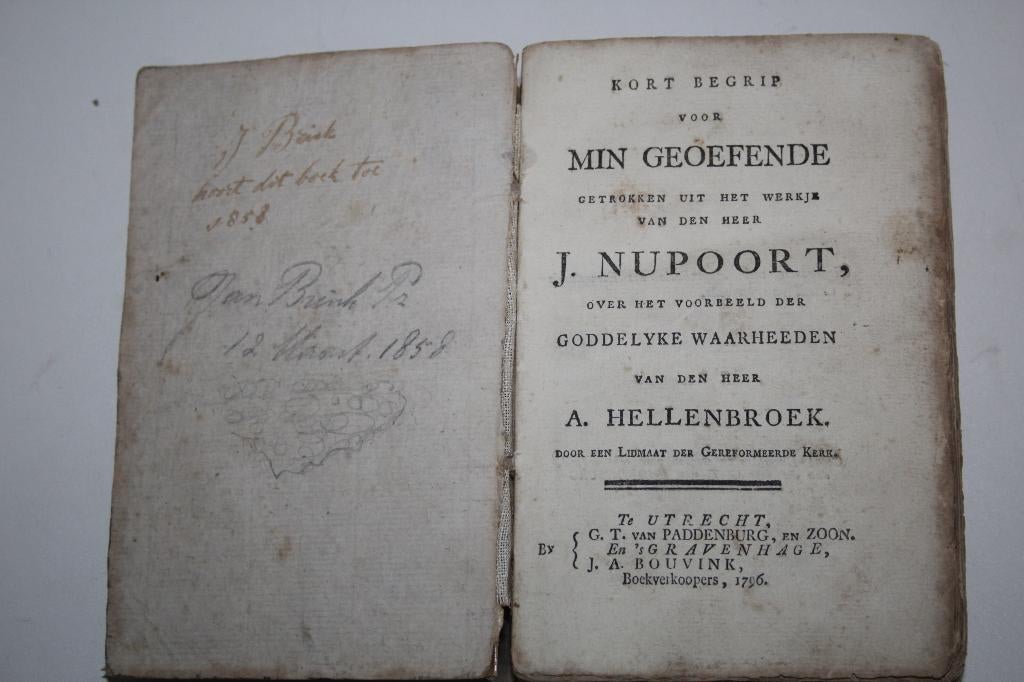 J Brink
hoort dit boek toe
1858
Jan Brink Pz
12 Maart. 1858
KORT BEGRIP
VOOR
MIN GEOEFENDE
GETROKKEN UIT HET WERKJE
VAN DEN HEER
J. NUPOORT,
OVER HET VOORBEELD DER
GODDELYKE WAARHEEDEN
VAN DEN HEER
A. HELLENBROEK.
DOOR EEN LIDMAAT DER GEREFORMEERDE KERK.
Te UTRECHT,
G. T. VAN PADDENBURG, EN ZOON.
By En 'sGRAVENHAGE,
J. A. BOUVINK,
Boekverkoopers, 1796.